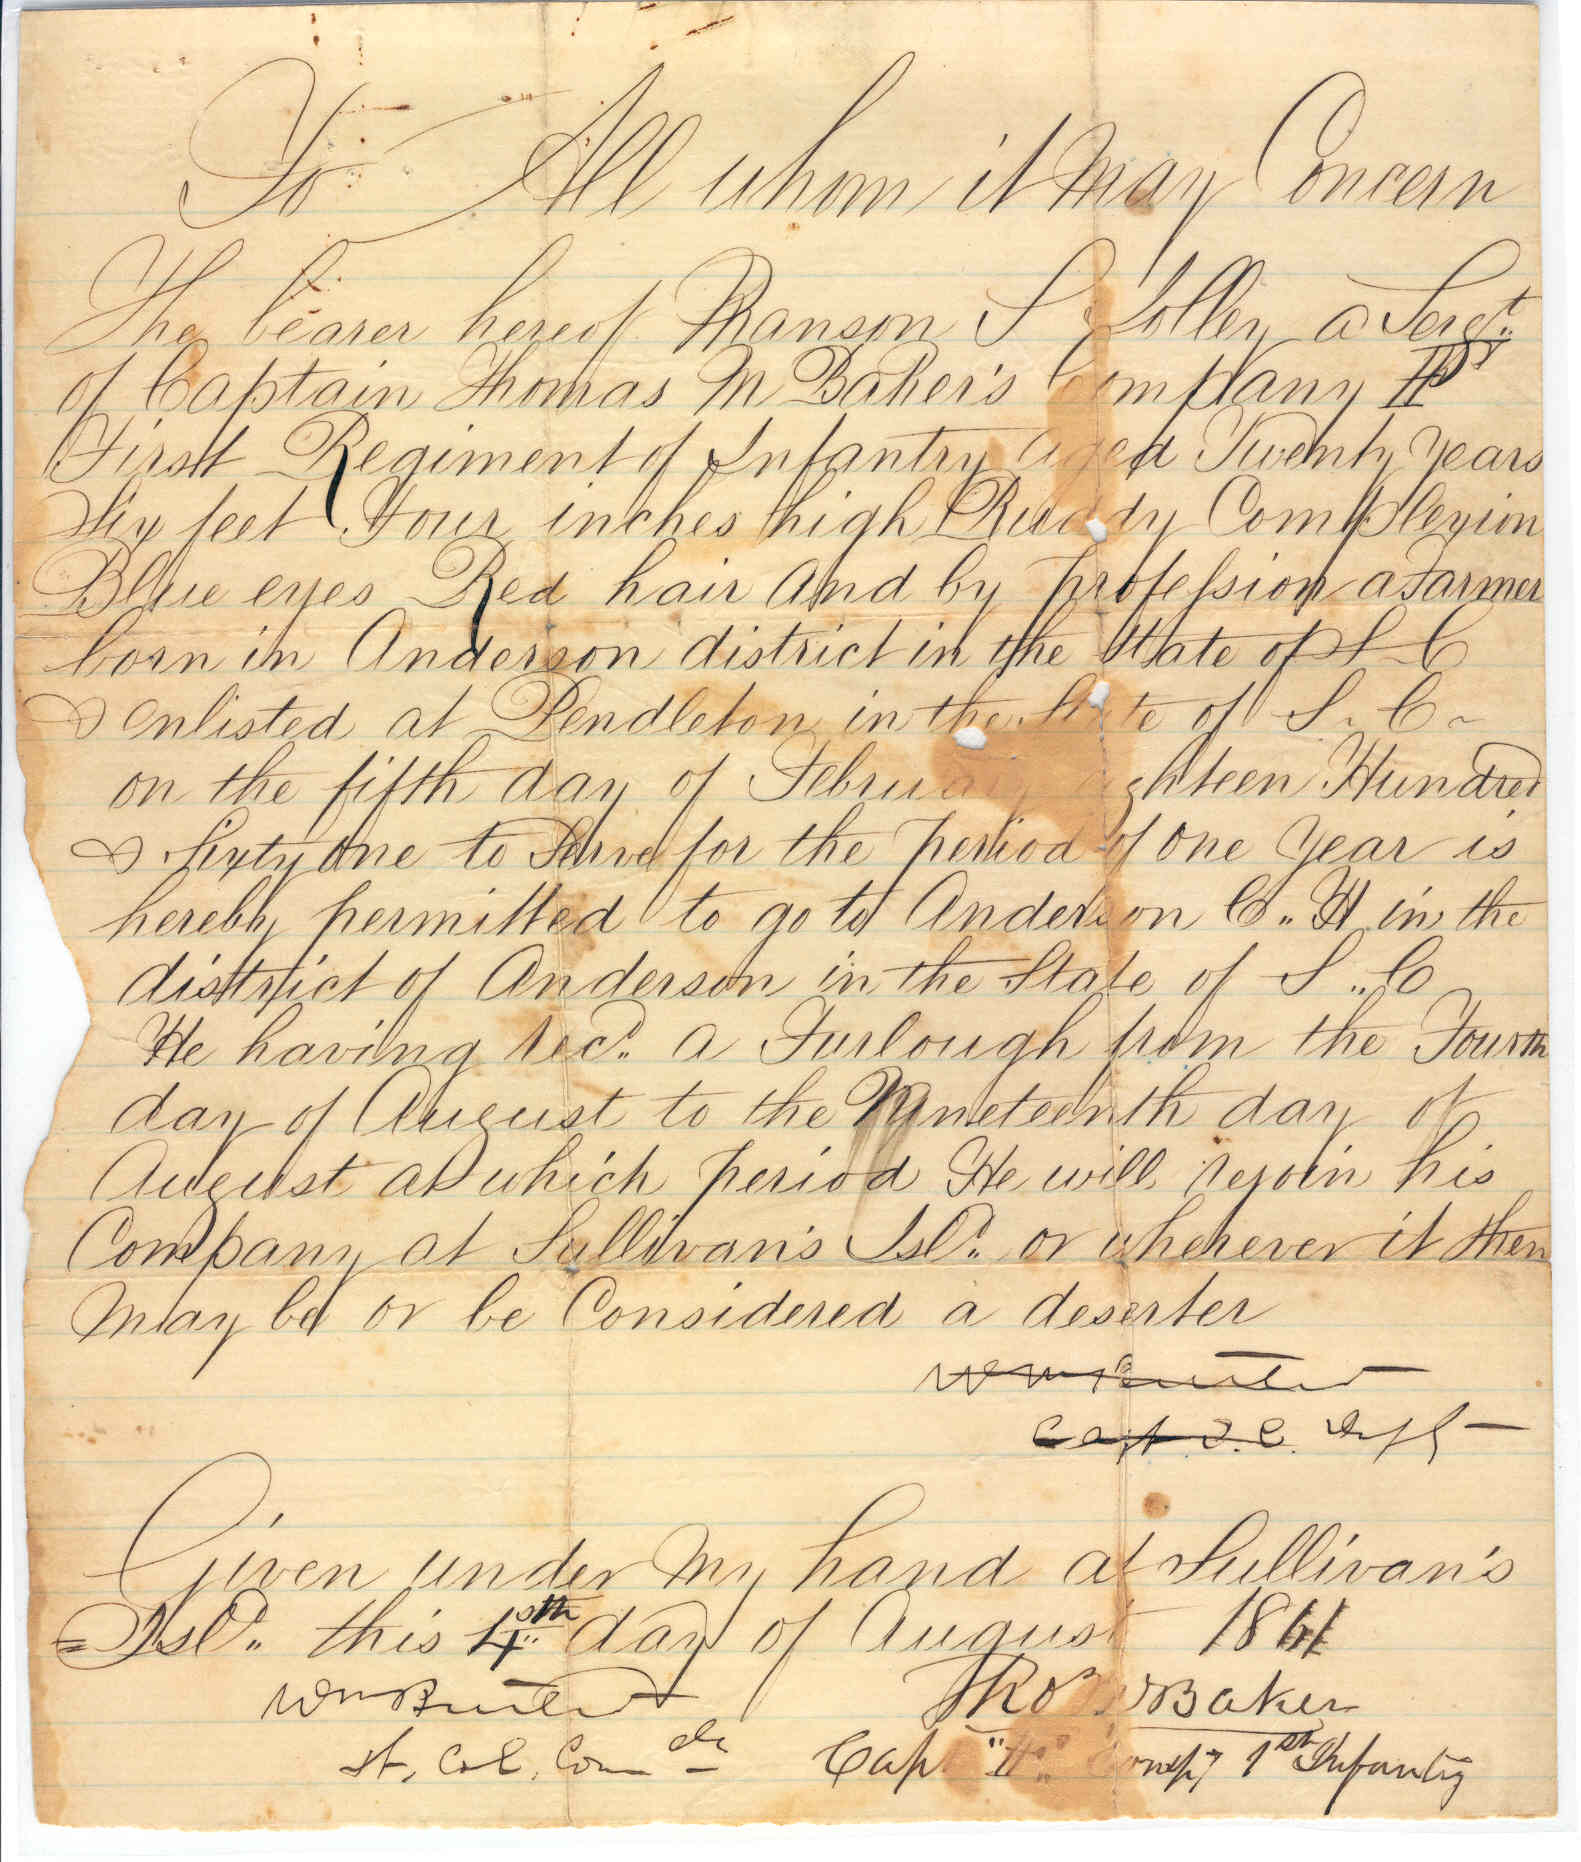 To All whom it May Concern
The bearer hereof Ranson S Jolley a Sergt.
of Captain Thomas M Baker's Company H
First Regiment of Infantry aged Twenty Years
Six feet Four inches high Ruddy Complexion
Blue eyes Red hair And by profession a Farmer
born in Anderson district in the State of S C
& Enlisted at Pendleton in the State of S. C.
on the fifth day of February Eighteen Hundred
& Sixty One to Serve for the period of One Year is
hereby permitted to go to Anderson C.. H in the
district of Anderson in the State of S.. C
He having recd.. a Furlough from the Fourth
day of August to the Nineteenth day of
August at which period He will rejoin his
Company at Sullivan's Isld.. or wherever it then
May be or be Considered a deserter
Wm Butler
Capt
Given under My hand at Sullivan's
Isld.. this 4th day of August 1861
Wm Butler Thos M Baker
Lt. Col. Comdg Capt "H" Compy 1st Infantry